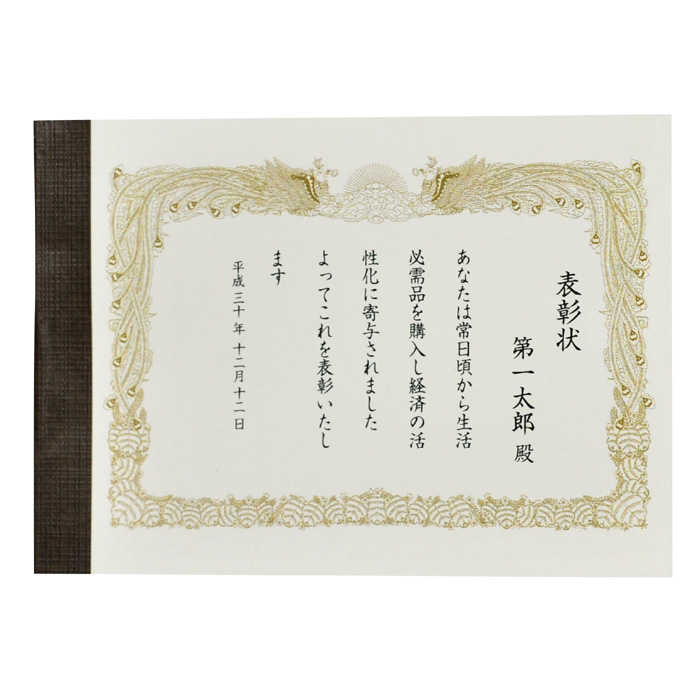 表彰状
第一太郎 殿
あなたは常日頃から生活
必需品を購入し経済の活
性化に寄与されました
よってこれを表彰いたし
ます
平成三十年十二月十二日